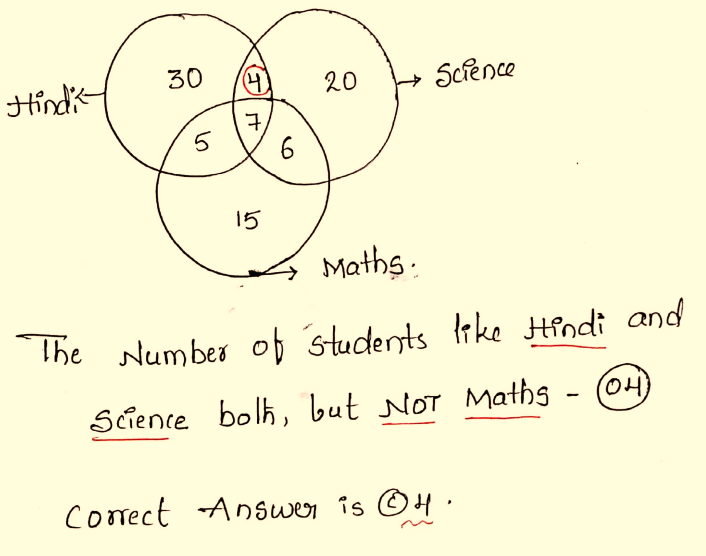 30 4 20 → Science
Hindi
7
5 6
15
→ Maths.
The Number of students like Hindi and
Science both, but NOT Maths - 04
Correct Answer is © 4.